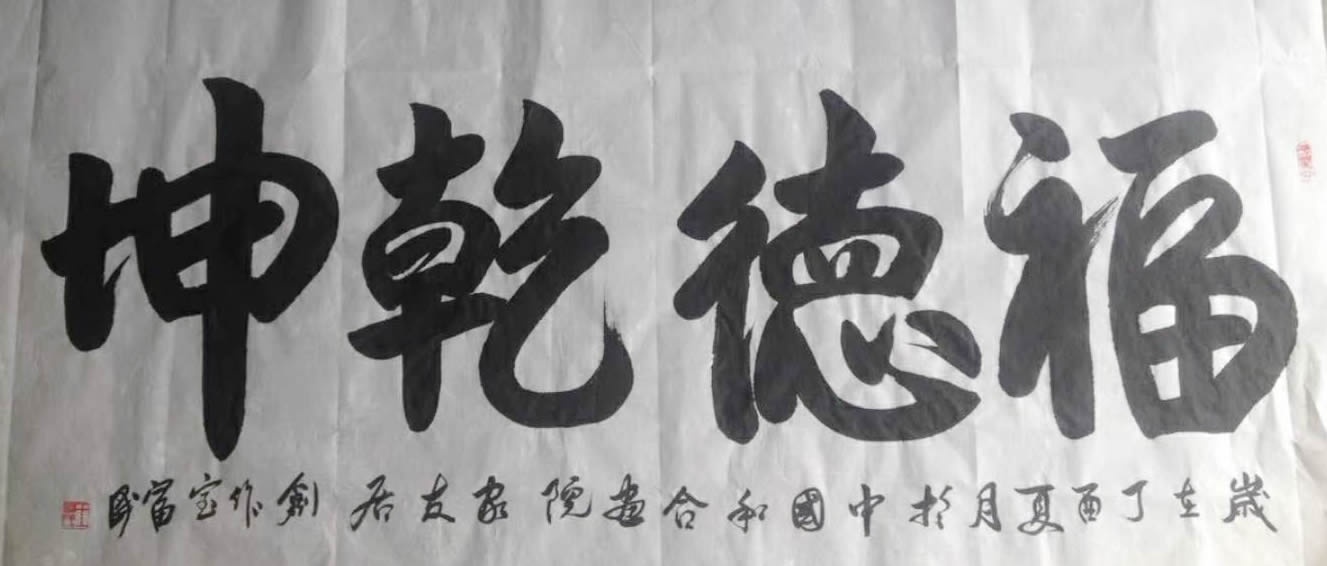 福德乾坤
歲在丁酉夏月於中國和合畫院家友居創作宝富